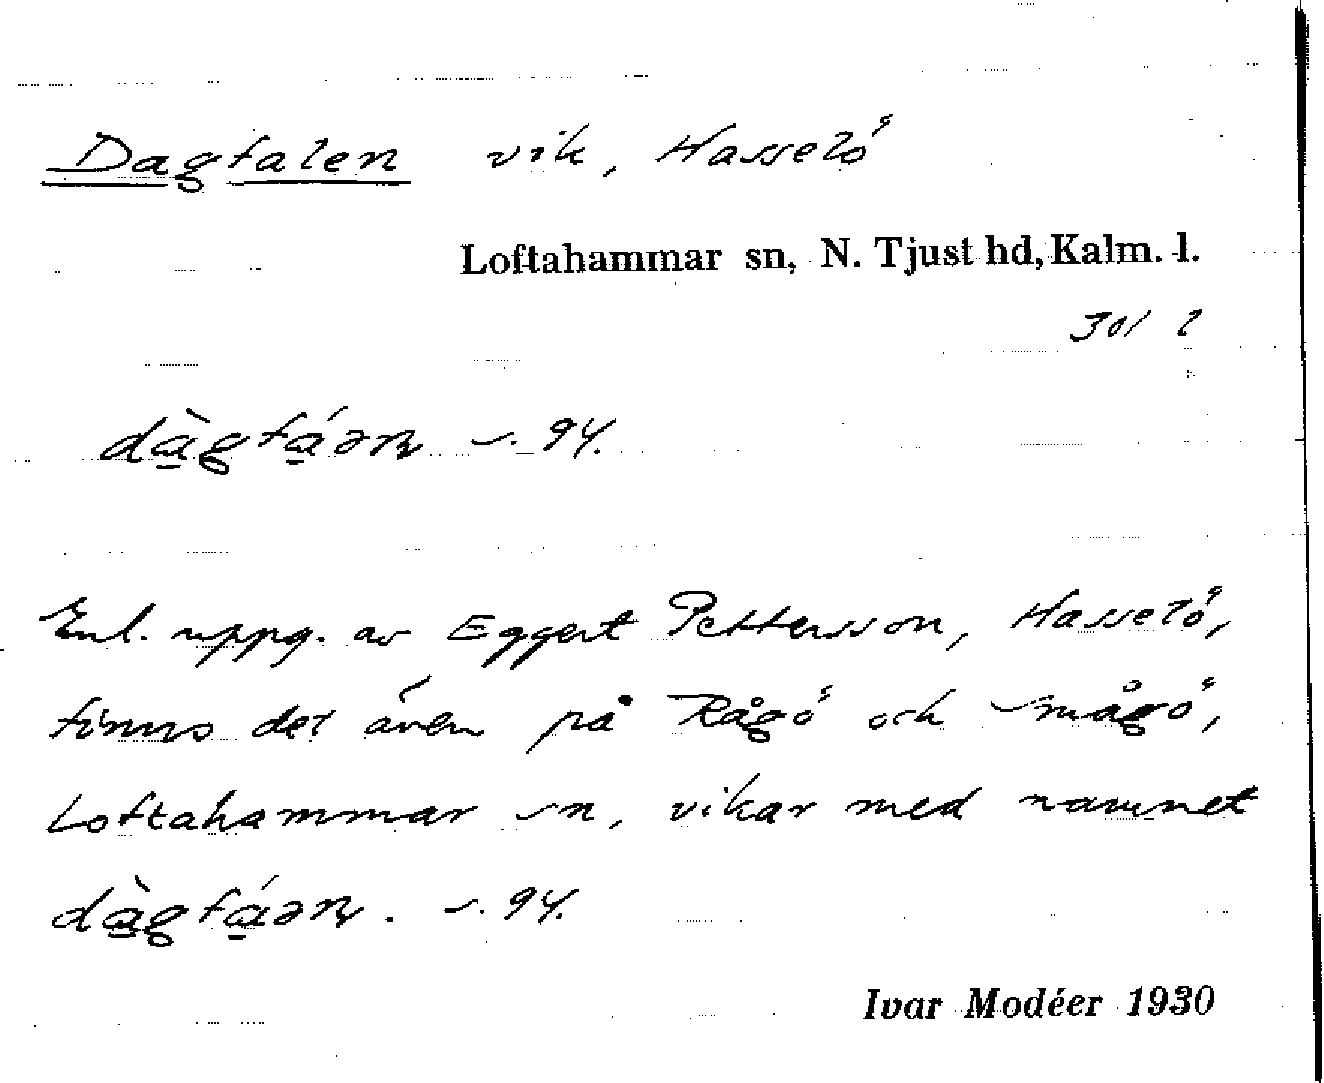 Dagfalen vik, Hasselö
Loftahammar sn, N. Tjust hd, Kalm. l.
301 ?
dàgfáən s. 94.
Enl. uppg. av Eggert Pettersson, Hasselö,
finns det även på Rågö och Smågö,
Loftahammar sn, vikar med namnet
dàgfáən. s. 94.
Ivar Modéer 1930